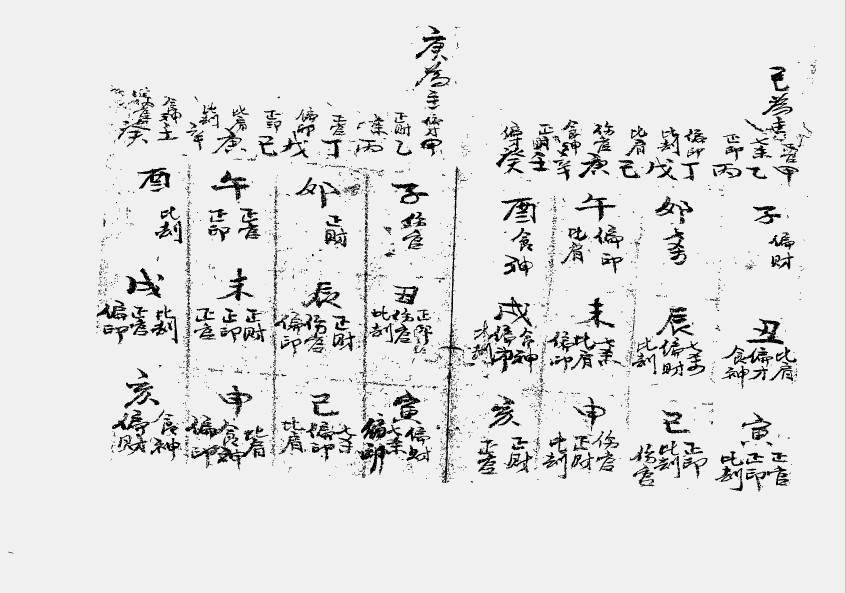 己為主
正官甲
七杀乙
正印丙
偏印丁
比刦戊
比肩己
伤官庚
食神辛
正財壬
偏財癸
子
偏財
丑
比肩
偏才
食神
寅
正官
正印
比刦
卯
七杀
辰
七杀
偏財
比刦
己
正印
比刦
伤官
午
偏印
比肩
未
七杀
比肩
偏印
申
伤官
正財
比刦
酉
食神
戌
食神
偏印
亥
正財
正官
庚為主
偏才甲
正財乙
七杀丙
正官丁
偏印戊
正印己
比肩庚
比刦辛
食神壬
伤官癸
子
伤官
丑
正印
伤官
比刦
寅
偏財
七杀
偏印
卯
正財
辰
正財
伤官
偏印
己
七杀
偏印
比肩
午
正官
正印
未
正財
正印
正官
申
比肩
食神
偏印
酉
比刦
戌
比刦
正官
偏印
亥
食神
偏財